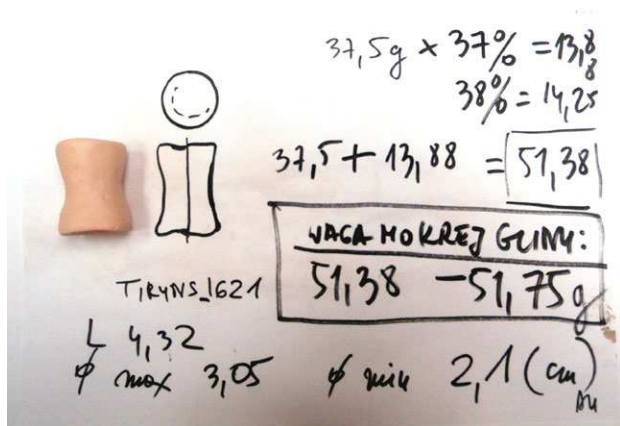 37,5g × 37% = 13,88
38% = 14,25
37,5 + 13,88 = 51,38
WAGA MOKREJ GLINY:
51,38 – 51,75g
TIRYNS_1621
L 4,32
φ max 3,05
φ min 2,1 (cm)